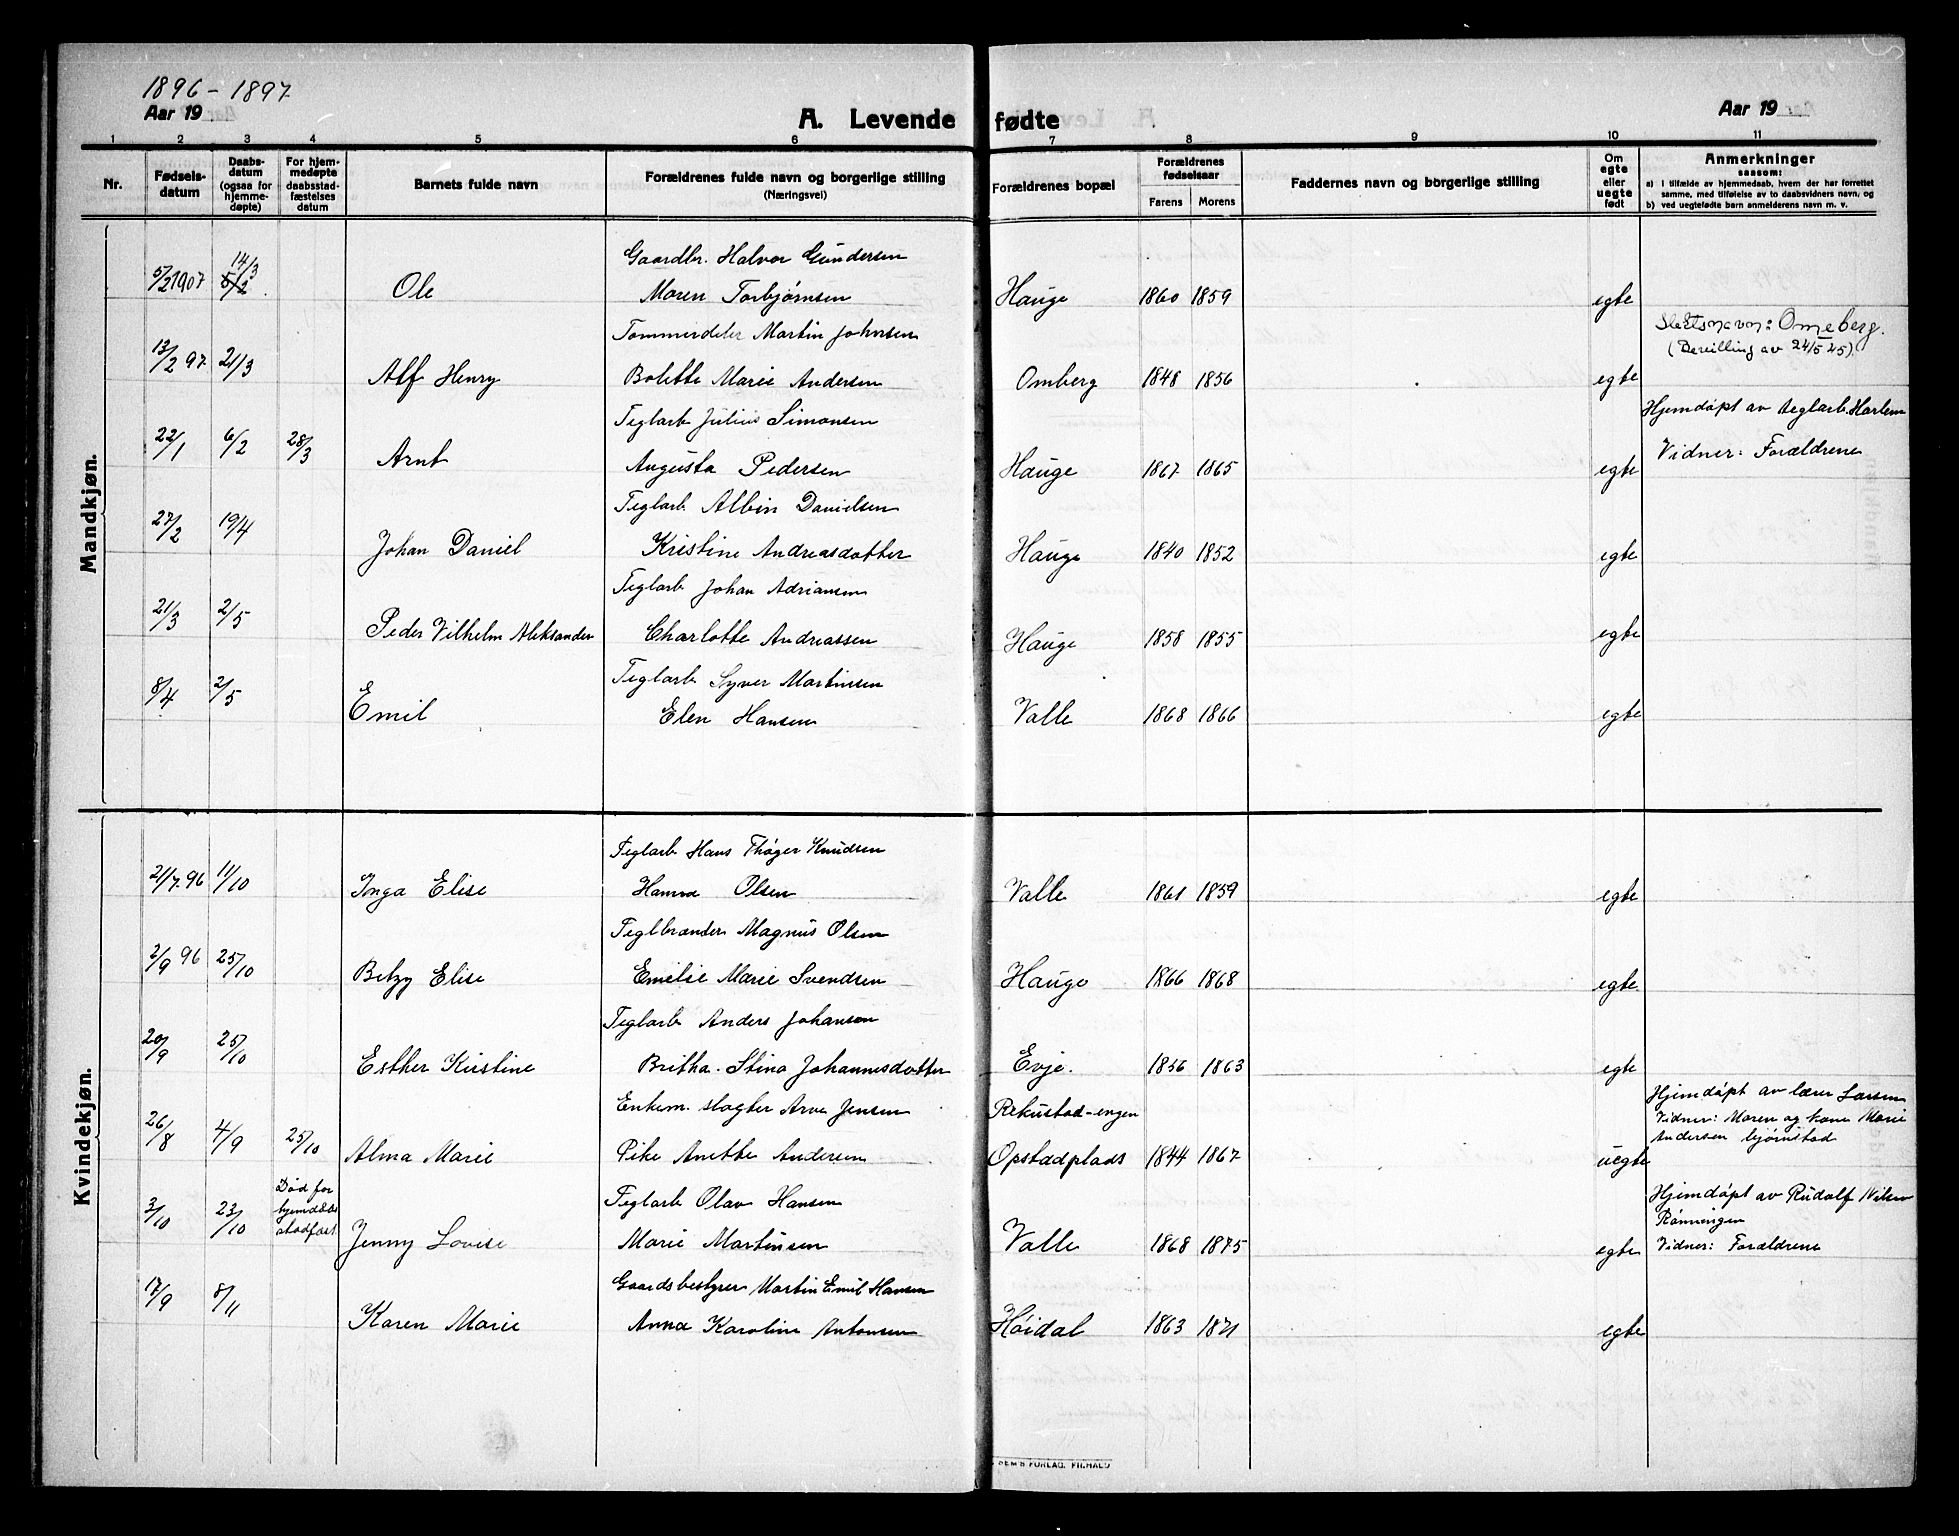 1896 - 1897
Aar 19
A. Levende fødte
Aar 19
1 2 3 4 5 6 7 8 9 10 11
Nr.
Fødsels-
datum
Daabs-
datum
(ogsaa for
hjemme-
døpte)
For hjem-
medøpte
daabsstad-
fæstelses
datum
Barnets fulde navn
Forældrenes fulde navn og borgerlige stilling
(Næringsvei)
Forældrenes bopæl
Forældrenes
fødselsaar
Farens Morens
Faddernes navn og borgerlige stilling
Om
egte
eller
uegte
født
Anmerkninger
saasom:
a) i tilfælde av hjemmedaab, hvem der har forrettet
samme, med tilføielse av to daabsvidners navn, og
b) ved uegtefødte barn anmelderens navn m. v.
Mandkjøn.
Gaardbr. Halvor Gundersen
14/3
5/2 1907 5/2 Ole Maren Torbjørnsen Hauge 1860 1859 egte
Tømmerdeler Martin Johnsen
Slektsnavn: Omeberg.
(Bevilling av 24/5 45).
13/2 97 21/3 Alf Henry Bolette Marie Andersen Omberg 1848 1856 egte
Teglarb Julius Simonsen
Hjemdøpt av teglarb. Harlem
22/1 6/2 28/3 Arnt Augusta Pedersen Hauge 1867 1865 egte
Vidner: Forældrene
Teglarb Albin Danielsen
27/2 19/4 Johan Daniel Kristine Andreasdotter Hauge 1840 1852 egte
Teglarb Johan Adriansen
21/3 2/5 Peder Vilhelm Aleksander Charlotte Andreassen Hauge 1858 1855 egte
Teglarb Syver Martinsen
8/4 2/5 Emil Elen Hansen Valle 1868 1866 egte
Kvindekjøn.
Teglarb Hans Thøger Knudsen
21/7.96 11/10 Inga Elise Hanna Olsen Valle 1861 1859 egte
Teglbrænder Magnus Olsen
2/9 96 25/10 Betzy Elise Emelie Marie Svendsen Hauge 1866 1868 egte
Teglarb Anders Johansen
20/9 25/10 Esther Kirstine Britha-Stina Johannesdotter Evje. 1856 1863 egte
Enkem. slagter Arve Jensen Rekustad-engen
Hjemdøpt av lærer Larsen
Vidner: Maren og kone Marie
Andersen bjørnstad
26/8 4/9 25/10 Alma Marie Pike Anette Andersen Opstadplads 1844 1867 uegte
Død for
hjemdaab
stadfæst
Teglarb Olav Hansen
Hjemdøpt av Rudolf Nilsen
Rønningen
3/10 23/10 Jenny Lovise Marie Martinsen Valle 1868 1875 egte
Vidner: Forældrene
Gaardsbestyrer Martin Emil Hansen
17/9 8/11 Karen Marie Anna Karoline Antonsen Høidal 1863 1871 egte
FORLAG, F.HALD